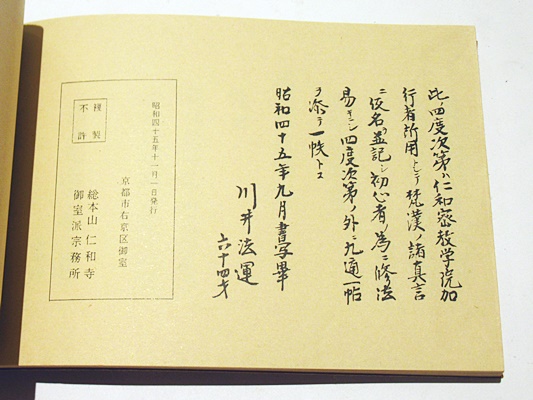 此ノ四度次第ハ仁和密教学院加
行者所用トシテ梵漢ノ諸真言
ニ仮名ヲ並記シ初心者ノ為ニ修法
易キシ四度次第ノ外ニ九通一帖
ヲ添ヲ一帙トス
昭和四十五年九月書写畢
川井法運
六十四才
昭和四十五年十一月一日発行
京都市右京区御室
総本山 仁和寺
御室派宗務所
複製
不許